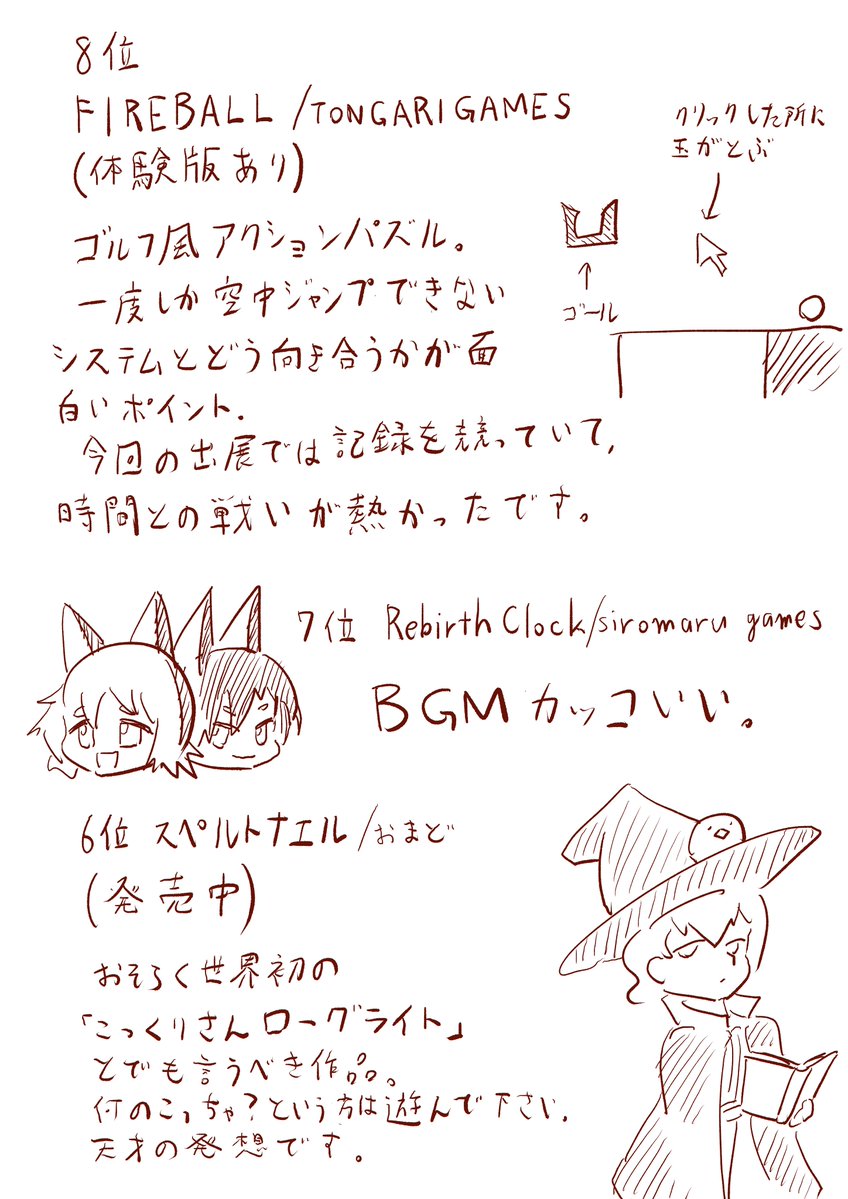 8位
FIREBALL /TONGARIGAMES
(体験版あり)
クリックした所に
玉がとぶ
ゴール
ゴルフ風アクションパズル。
一度しか空中ジャンプできない
システムとどう向き合うかが面
白いポイント.
今回の出展では記録を競っていて,
時間との戦いが熱かったです。
7位 Rebirth Clock/siromaru games
BGMカッコいい。
6位 スペルトナエル/おまど
(発売中)
おそらく世界初の
「こっくりさんローグライト」
とでも言うべき作品。
何のこっちゃ?という方は遊んで下さい.
天才の発想です。